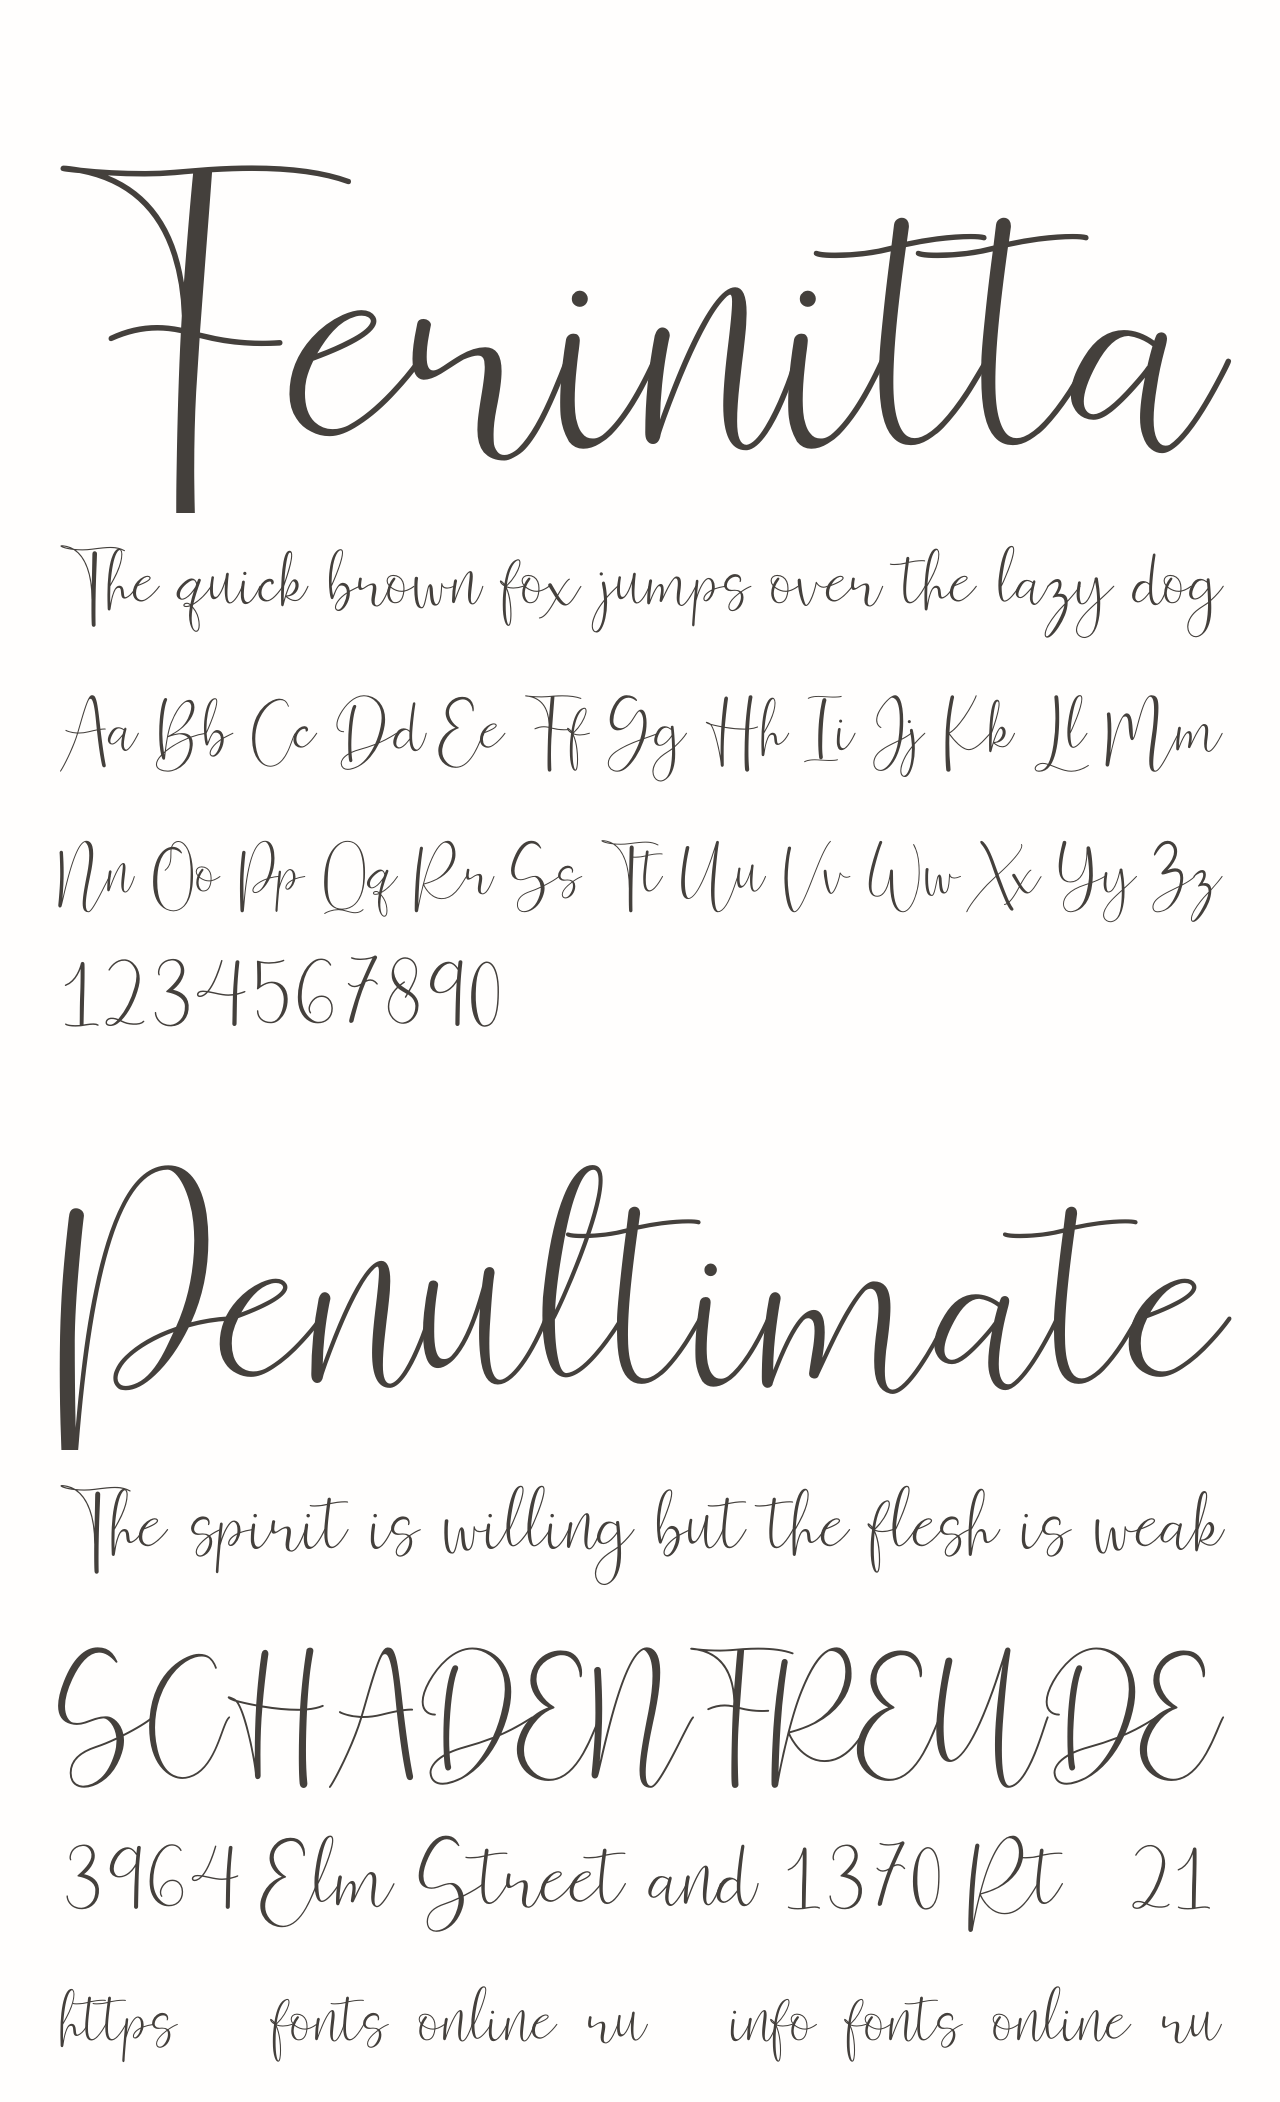 Ferinitta
The quick brown fox jumps over the lazy dog
Aa Bb Cc Dd Ee Ff Gg Hh Ii Jj Kk Ll Mm
Nn Oo Pp Qq Rr Ss Tt Uu Vv Ww Xx Yy Zz
1234567890
Penultimate
The spirit is willing but the flesh is weak
SCHADENFREUDE
3964 Elm Street and 1370 Rt 21
https fonts online ru info fonts online ru